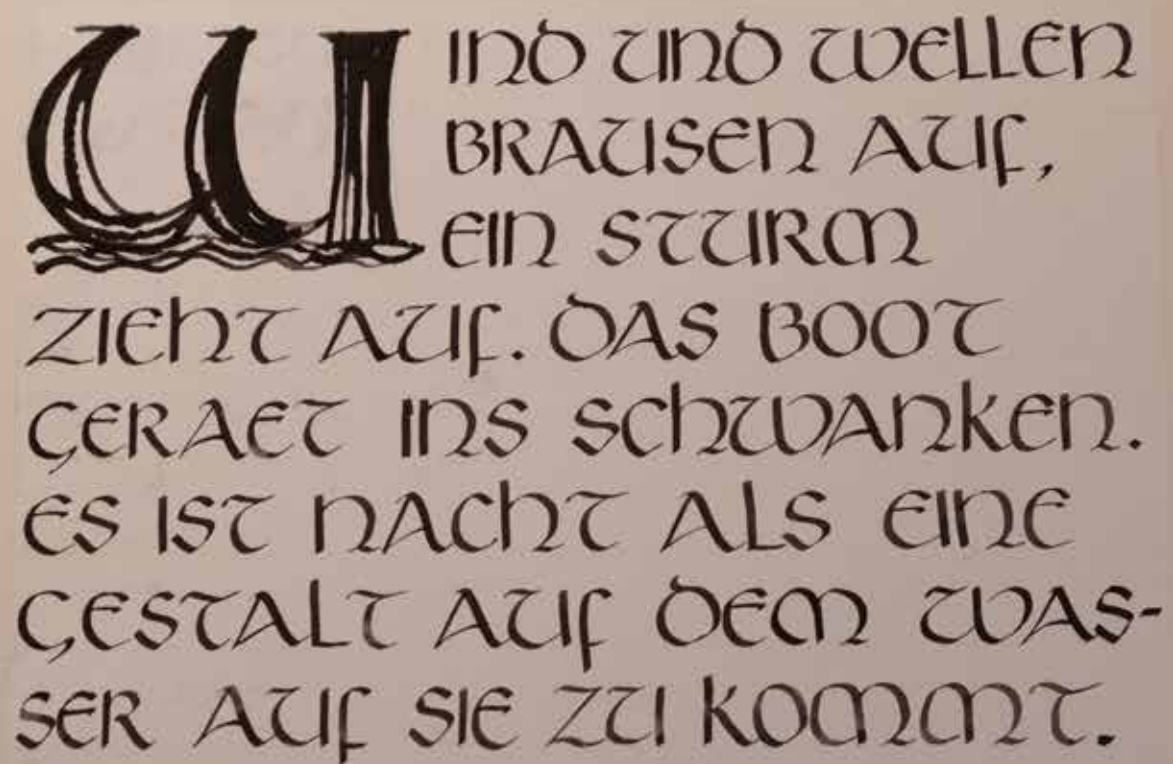 WIND UND WELLEN
BRAUSEN AUF,
EIN STURM
ZIEHT AUF. DAS BOOT
GERAET INS SCHWANKEN.
ES IST NACHT ALS EINE
GESTALT AUF DEM WAS-
SER AUF SIE ZU KOMMT.